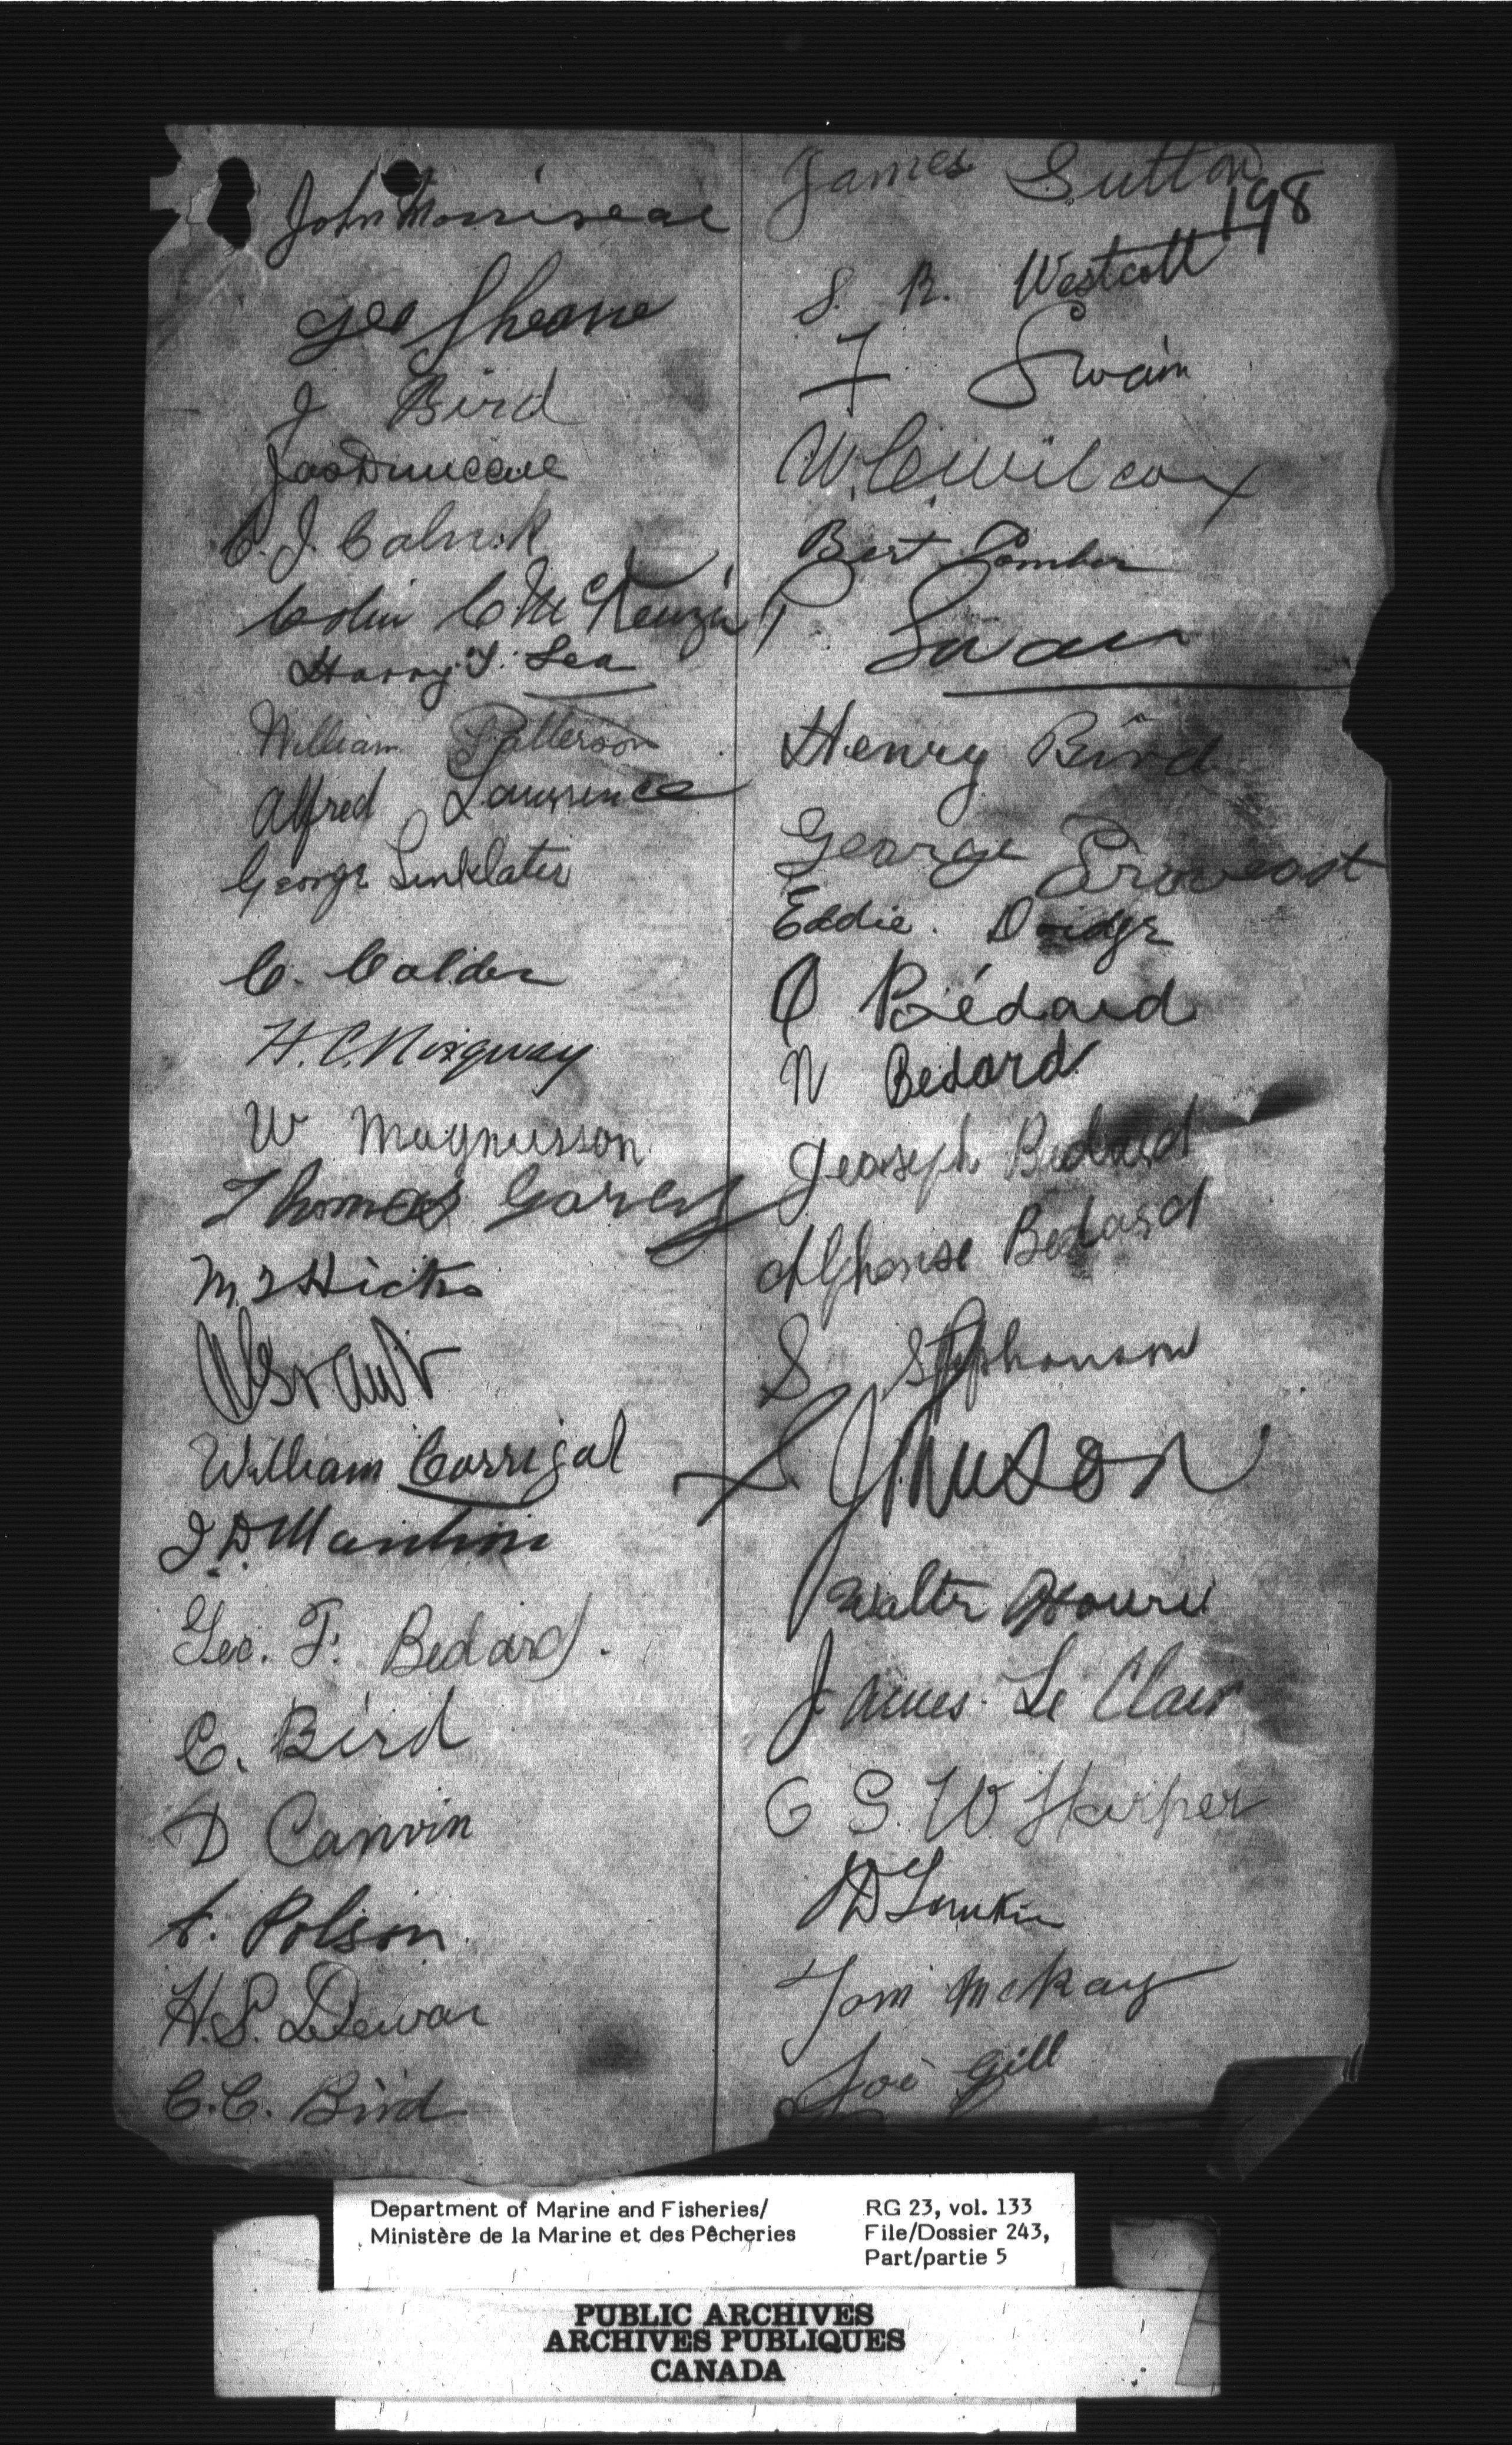 John Morriseau
Geo Shearre
J Bird
Jas Duncan
C. J. Calnek
Colin C McKenzie
Harry T. Lea
William Patterson
Alfred Lawrence
George Sinklater
C. Calder
H. C. Norquay
W Magnusson
Thomas Garey
M J Hicks
Grant
William Corrigal
J. D. Martin
Geo. F. Bedard.
C. Bird
D Canvin
Polson
H. S. Dewar
C. C. Bird
James Sutton
198
S. R. Westcott
F Swain
W. C. Wilcox
Bert Comber
P Swain
Henry Bird
George
Eddie. Doidge
O Bédard
N Bedard
Jeaseph Bedard
Alphonse Bedard
S Stephanson
S
Walter Hourie
James Le Clair
G S. W Harper
D Larukin
Tom McKay
Joe Gill
Department of Marine and Fisheries/
Ministère de la Marine et des Pêcheries
RG 23, vol. 133
File/Dossier 243,
Part/partie 5
PUBLIC ARCHIVES
ARCHIVES PUBLIQUES
CANADA